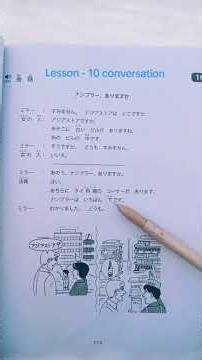 会話
Lesson - 10 conversation
ナンプラー、ありますか
ミラー： すみません。アジアストアは どこですか。
女の人： アジアストアですか。
あそこに 白い ビルが ありますね。
あの ビルの 中です。
ミラー： そうですか。どうも すみません。
女の人： いいえ。
ミラー： あのう、ナンプラー、ありますか。
店員： はい。
あちらに タイ料理の コーナーが あります。
ナンプラーは いちばん 下です。
ミラー： わかりました。どうも。
アジアストア？